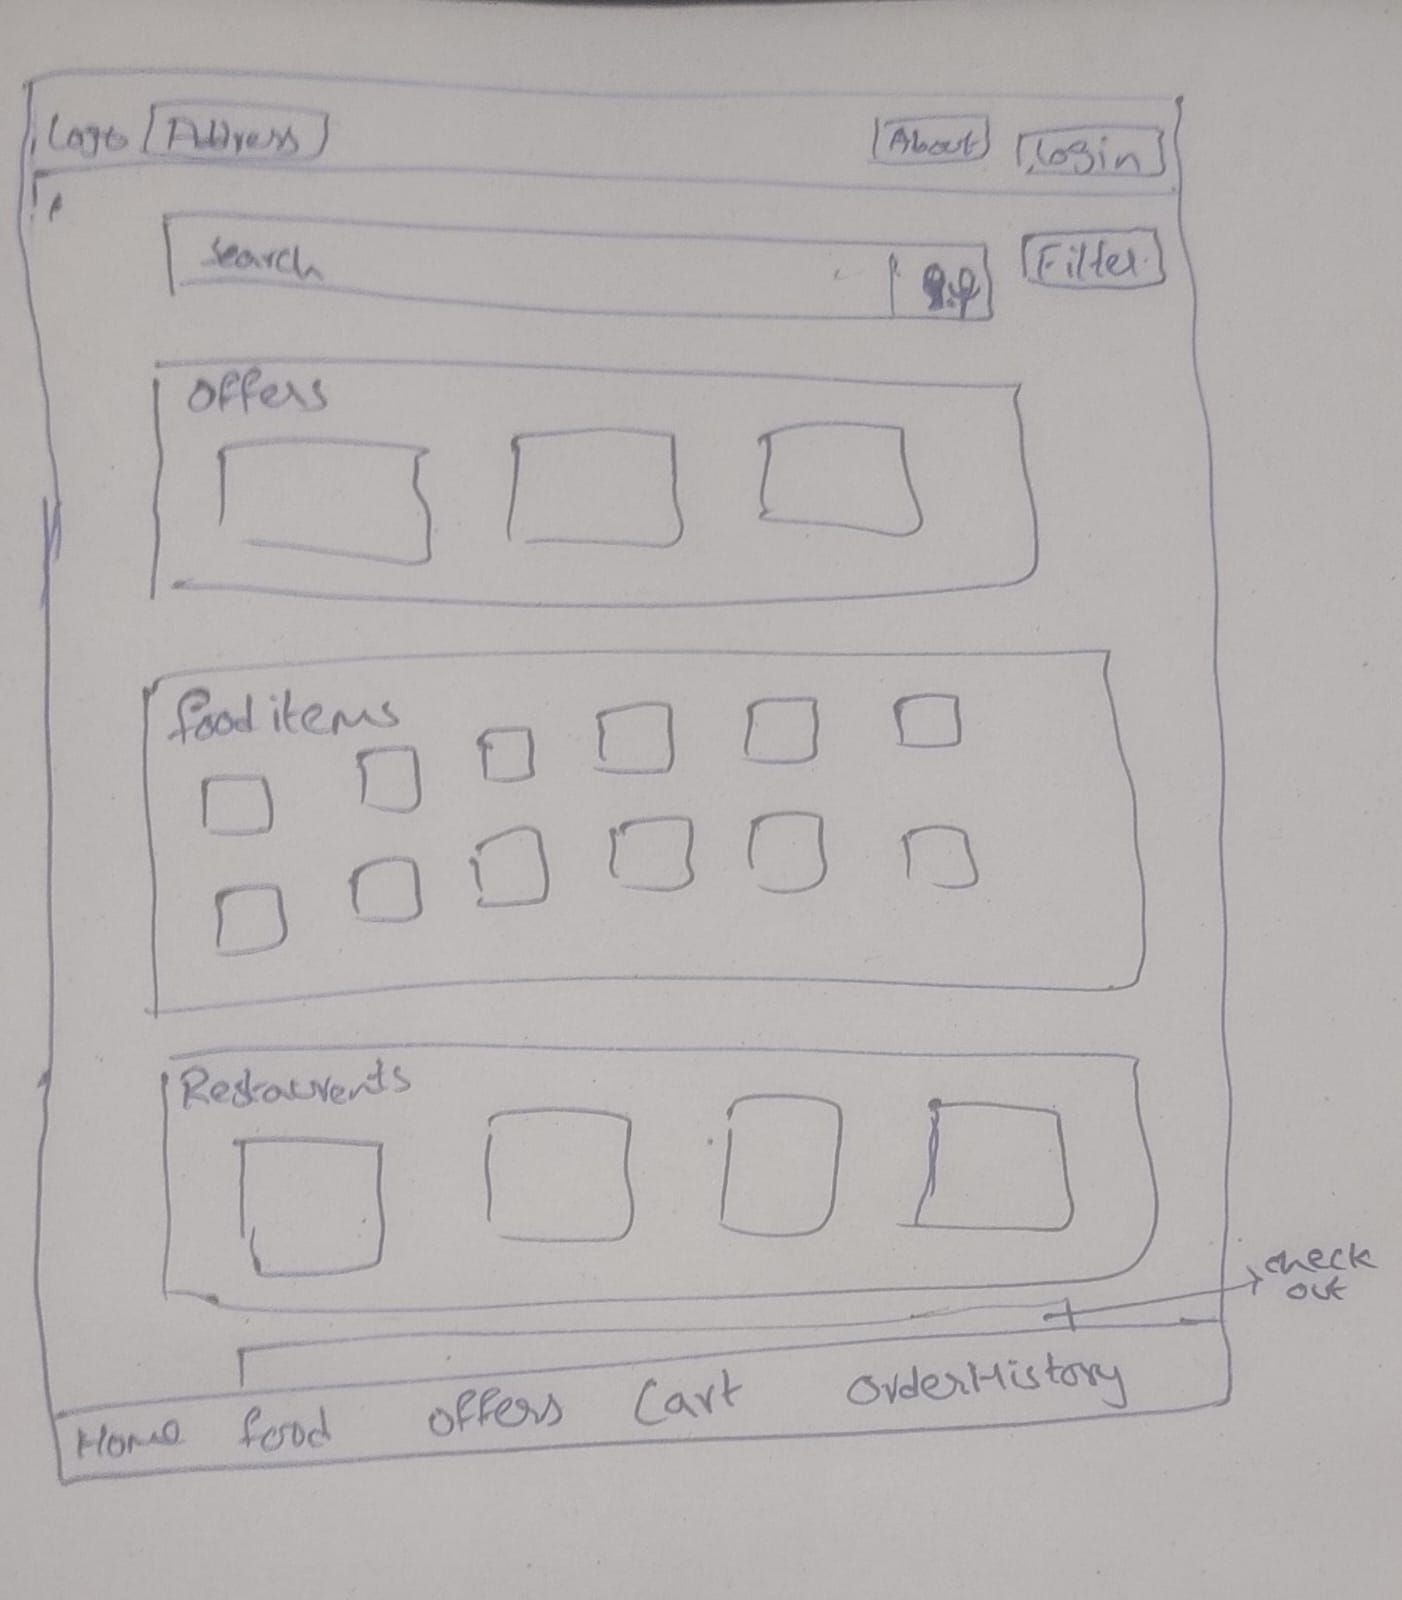 Logo Address About Login
Search Filter
offers
food items
Restaurents
check
out
Home food offers Cart OrderHistory